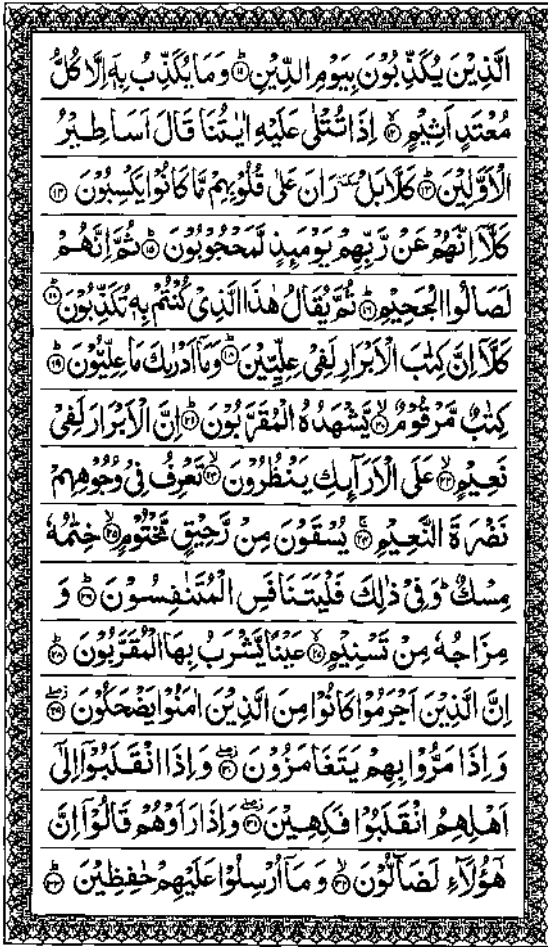 الَّذِيْنَ يُكَذِّبُوْنَ بِيَوْمِ الدِّيْنِ ؕ۝۱۱ وَمَا يُكَذِّبُ بِهٖۤ اِلَّا كُلُّ
مُعْتَدٍ اَثِيْمٍ ۙ۝۱۲ اِذَا تُتْلٰى عَلَيْهِ اٰيٰتُنَا قَالَ اَسَاطِيْرُ
الْاَوَّلِيْنَ ؕ۝۱۳ كَلَّا بَلْ ٚ رَانَ عَلٰى قُلُوْبِهِمْ مَّا كَانُوْا يَكْسِبُوْنَ ۝۱۴
كَلَّاۤ اِنَّهُمْ عَنْ رَّبِّهِمْ يَوْمَىِٕذٍ لَّمَحْجُوْبُوْنَ ؕ۝۱۵ ثُمَّ اِنَّهُمْ
لَصَالُوا الْجَحِيْمِ ؕ۝۱۶ ثُمَّ يُقَالُ هٰذَا الَّذِىْ كُنْتُمْ بِهٖ تُكَذِّبُوْنَ ؕ۝۱۷
كَلَّاۤ اِنَّ كِتٰبَ الْاَبْرَارِ لَفِىْ عِلِّيِّيْنَ ؕ۝۱۸ وَمَاۤ اَدْرٰىكَ مَا عِلِّيُّوْنَ ؕ۝۱۹
كِتٰبٌ مَّرْقُوْمٌ ۙ۝۲۰ يَّشْهَدُهُ الْمُقَرَّبُوْنَ ؕ۝۲۱ اِنَّ الْاَبْرَارَ لَفِىْ
نَعِيْمٍ ۙ۝۲۲ عَلَى الْاَرَآىِٕكِ يَنْظُرُوْنَ ۙ۝۲۳ تَعْرِفُ فِىْ وُجُوْهِهِمْ
نَضْرَةَ النَّعِيْمِ ۚ۝۲۴ يُسْقَوْنَ مِنْ رَّحِيْقٍ مَّخْتُوْمٍ ۙ۝۲۵ خِتٰمُهٗ
مِسْكٌ ؕ وَفِىْ ذٰلِكَ فَلْيَتَنَافَسِ الْمُتَنٰفِسُوْنَ ؕ۝۲۶ وَ
مِزَاجُهٗ مِنْ تَسْنِيْمٍ ۙ۝۲۷ عَيْنًا يَّشْرَبُ بِهَا الْمُقَرَّبُوْنَ ؕ۝۲۸
اِنَّ الَّذِيْنَ اَجْرَمُوْا كَانُوْا مِنَ الَّذِيْنَ اٰمَنُوْا يَضْحَكُوْنَ ۝۲۹
وَاِذَا مَرُّوْا بِهِمْ يَتَغَامَزُوْنَ ۝۳۰ وَاِذَا انْقَلَبُوْۤا اِلٰٓى
اَهْلِهِمُ انْقَلَبُوْا فَكِهِيْنَ ۝۳۱ وَاِذَا رَاَوْهُمْ قَالُوْۤا اِنَّ
هٰٓؤُلَآءِ لَضَآلُّوْنَ ۙ۝۳۲ وَمَاۤ اُرْسِلُوْا عَلَيْهِمْ حٰفِظِيْنَ ؕ۝۳۳